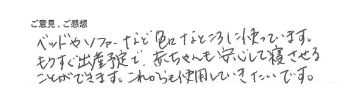 ご意見．ご感想
ベッドやソファーなど色々なところに使っています。
もうすぐ出産予定で、赤ちゃんも安心して寝させる
ことができます。これからも使用していきたいです。